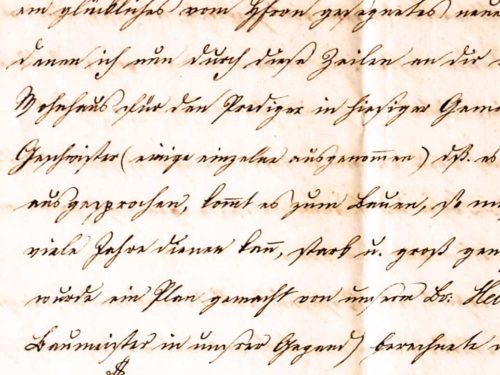 ein glückliches vom Herrn gesegnetes neue
denen ich nun durch diese Zeilen an dir
Wohnhaus für den Prediger in hiesiger Gem
Geschwister (einige einzelne ausgenommen) dß. es
ausgesprochen, kom̄t es zum Bauen, so m
viele Jahre dienen kan̄, stark u. groß gen
wurde ein Plan gemacht von unserm Br. Hei
Baumeister in unsrer Gegend) berechnete